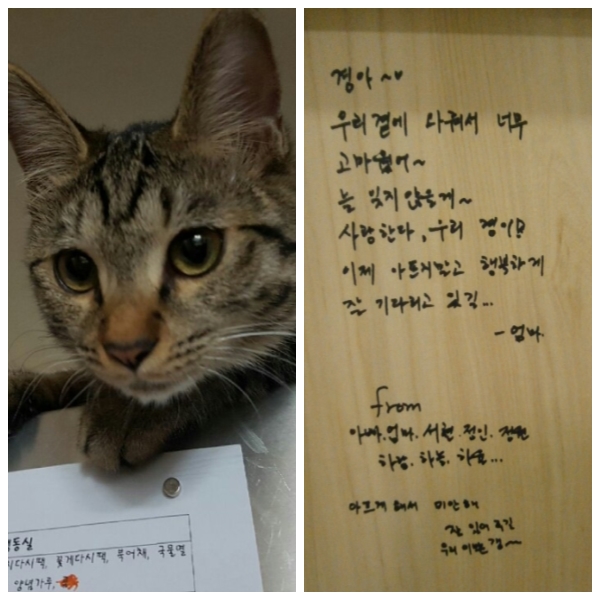 경아~♡
우리곁에 와줘서 너무
고마웠어~
늘 잊지않을게~
사랑한다, 우리 경이!!
이제 아프지말고 행복하게
잘 기다리고 있길...
- 엄마.
from
아빠.엄마. 서현.정인. 정원
하늘.
아프게 해서 미안해
우리 이쁜 경~~
동실
다시팩, 꽃게다시팩, 북어채, 국물멸
양념가루,